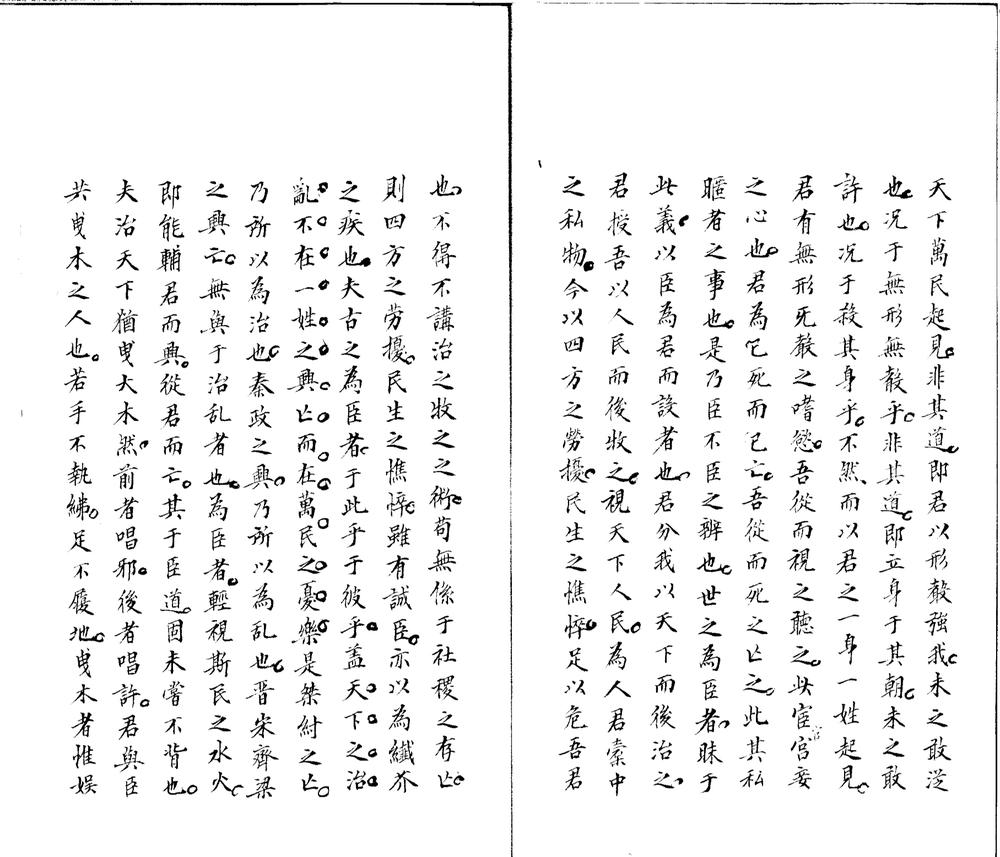 天下萬民起見。非其道。即君以形聲強我。未之敢從
也。況于無形無聲乎。非其道。即立身于其朝。未之敢
許也。況于殺其身乎。不然、而以君之一身一姓起見。
君有無形無聲之嗜慾。吾從而視之聽之。此宦官妾
之心也。君為已死而已亡。吾從而死之亡之。此其私
暱者之事也。是乃臣不臣之辨也。世之為臣者。昧于
此義。以臣為君而設者也。君分我以天下而後治之。
君授吾以人民而後牧之。視天下人民。為人君橐中
之私物。今以四方之勞擾。民生之憔悴。足以危吾君
也。不得不講治之牧之之術。苟無係于社稷之存亡。
則四方之勞擾。民生之憔悴。雖有誠臣。亦以為纖芥
之疾也。夫古之為臣者。于此乎于彼乎。蓋天下之治
亂。不在一姓之興亡。而在萬民之憂樂。是桀紂之亡。
乃所以為治也。秦政之興。乃所以為乱也。晋宋齊梁
之興亡。無與于治乱者也。為臣者。輕視斯民之水火。
即能輔君而興。從君而亡。其于臣道。固未嘗不背也。
夫治天下猶曳大木然。前者唱邪。後者唱許。君與臣
共曳木之人也。若手不執紼。足不履地。曳木者惟娛